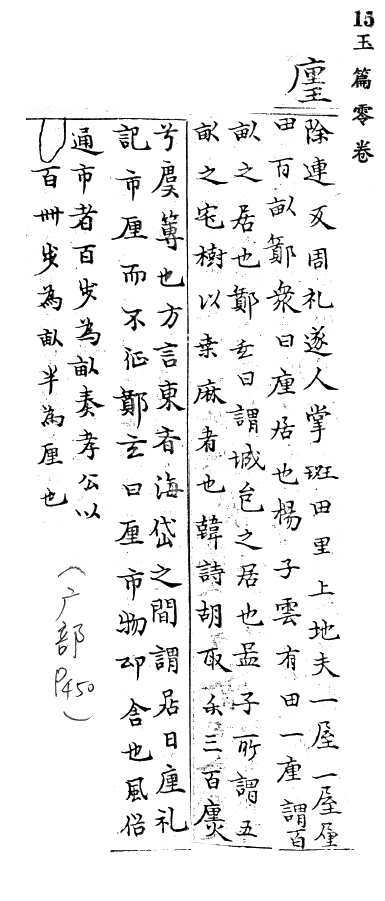 15 玉篇零卷
廛
除連反周礼遂人掌班田里上地夫一屋一屋廛
田百畝鄭衆曰廛居也楊子雲有田一廛謂百
畝之居也鄭玄曰謂城邑之居也孟子所謂五
畝之宅樹以桒麻者也韓詩胡取禾三百廛
兮廛篿也方言東齊海岱之間謂居曰廛礼
記市厘而不征鄭玄曰厘市物邸舍也風俗
通市者百步為畝秦孝公以
百卌步為畝半為厘也
(广部 P450)